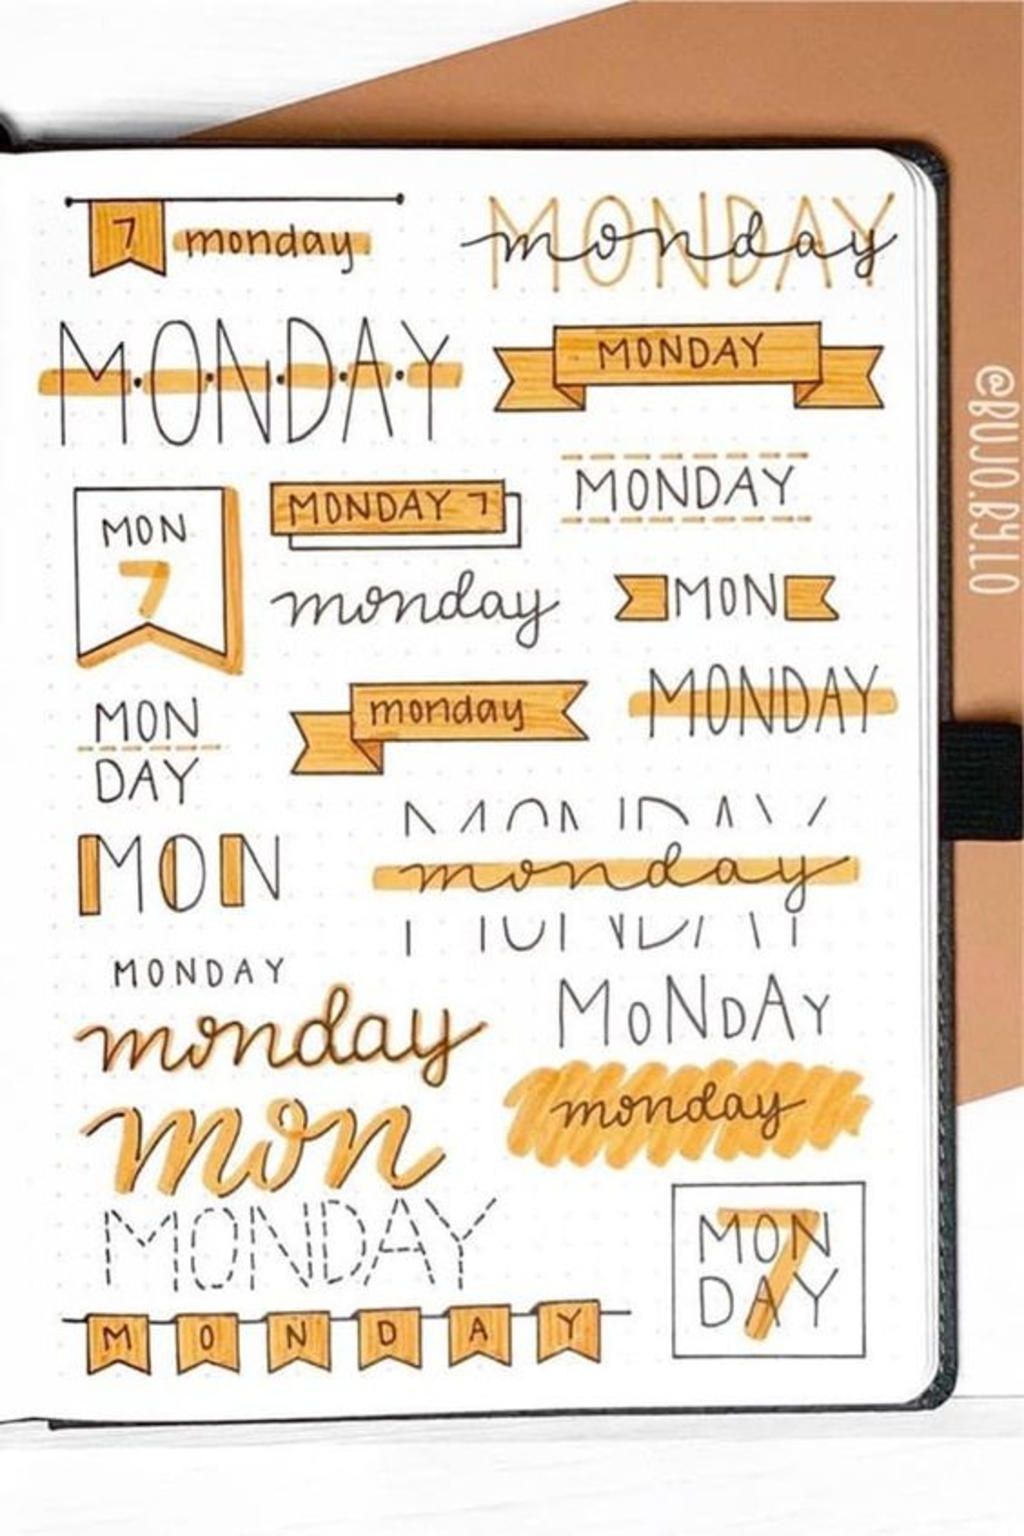 7 monday
MONDAY
monday
MONDAY
MONDAY
MON
7
MONDAY 7
MONDAY
monday
MON
MON
DAY
monday
MONDAY
MON
MONDAY
monday
MONDAY
monday
MoNDAy
mon
monday
MONDAY
MON
DAY
7
MONDAY
@BUJO.BY.LO